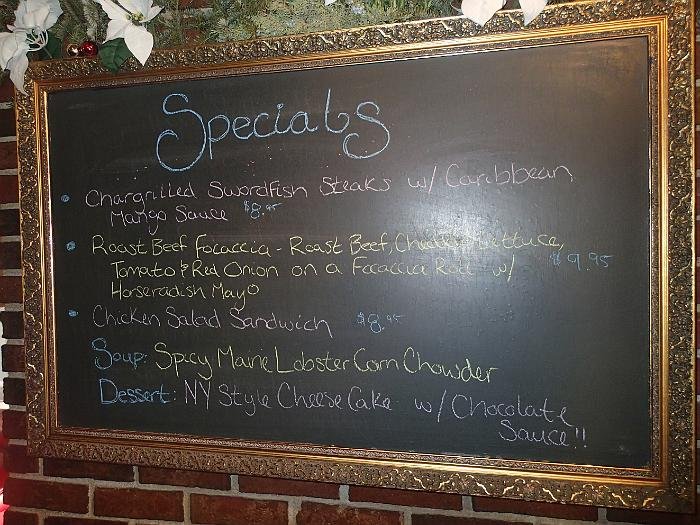 Specials
• Chargrilled Swordfish Steaks w/ Caribbean
Mango Sauce $8.95
• Roast Beef Focaccia - Roast Beef, Lettuce,
Tomato & Red Onion on a Foccaccia w/ $9.95
Horseradish Mayo
• Chicken Salad Sandwich $8.95
Soup: Spicy Maine Lobster Corn Chowder
Dessert: NY Style Cheese Cake w/ Chocolate
Sauce!!